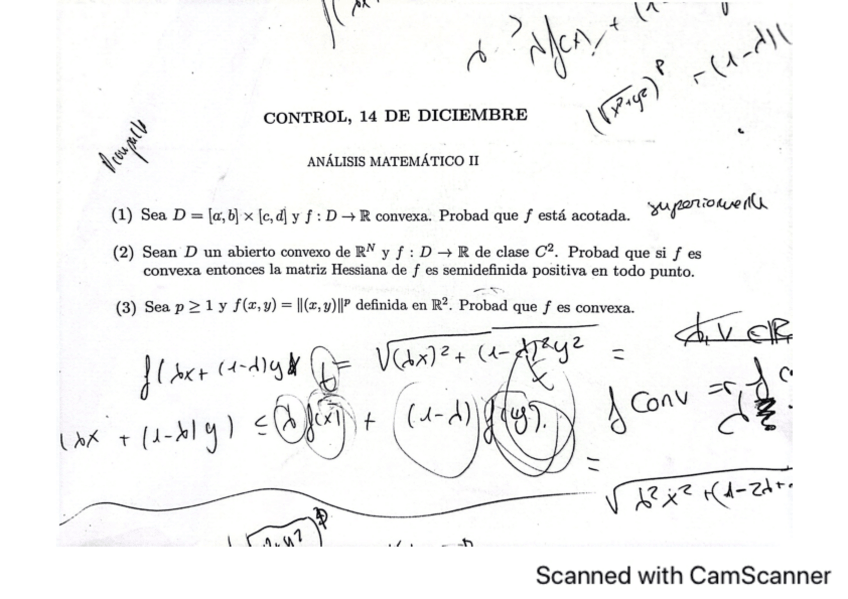 λ ? λf(x) + (1
(√x²+y²)^p - (1-λ)(
CONTROL, 14 DE DICIEMBRE
ANÁLISIS MATEMÁTICO II
(1) Sea D = [a, b] × [c, d] y f : D → ℝ convexa. Probad que f está acotada. superiormente
(2) Sean D un abierto convexo de ℝ^N y f : D → ℝ de clase C². Probad que si f es
convexa entonces la matriz Hessiana de f es semidefinida positiva en todo punto.
(3) Sea p ≥ 1 y f(x, y) = ‖(x, y)‖^p definida en ℝ². Probad que f es convexa.
f(λx + (1-λ)y
= √(λx)² + (1-λ)²y² =
(λx + (1-λ)y) ≤ λ f(x) + (1-λ) f(y).
f conv ⇒
= √λ²x² + (1-2λ+
Scanned with CamScanner